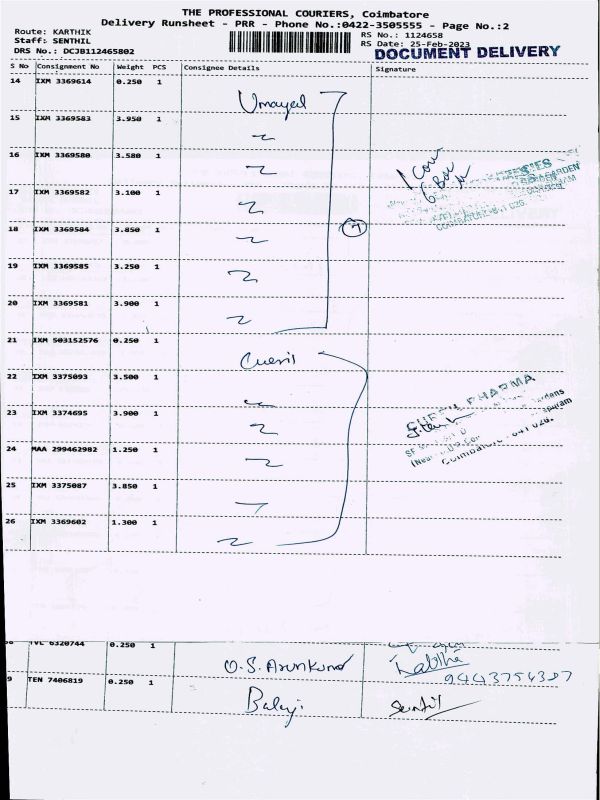 THE PROFESSIONAL COURIERS, Coimbatore
Delivery Runsheet - PRR - Phone No.:0422-3505555 - Page No.:2
Route: KARTHIK
Staff: SENTHIL
DRS No.: DCJB112465802
RS No.: 1124658
RS Date: 25-Feb-2023
DOCUMENT DELIVERY
S No Consignment No Weight PCS Consignee Details Signature
14 IXM 3369614 0.250 1 Umayal
15 IXM 3369583 3.950 1
16 IXM 3369580 3.580 1
17 IXM 3369582 3.100 1
18 IXM 3369584 3.850 1
19 IXM 3369585 3.250 1
20 IXM 3369581 3.900 1
7
1 Cou
6 Box
21 IXM 503152576 0.250 1
22 IXM 3375093 3.500 1
23 IXM 3374695 3.900 1
24 MAA 299462982 1.250 1
25 IXM 3375087 3.850 1
26 IXM 3369602 1.300 1
PHARMA
6320744 0.250 1 O.S. Arunkumar
9443754307
9 TEN 7406819 0.250 1 Balaji